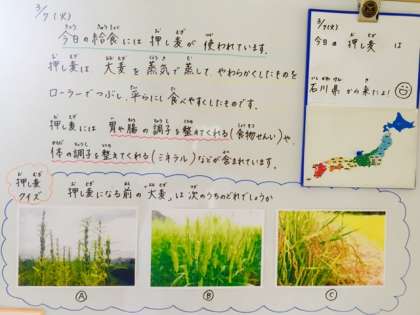 3/7(火)
今日の給食には押し麦が使われています。
押し麦は大麦を蒸気で蒸して、やわらかくしたものを
ローラーでつぶし、平らにし食べやすくしたものです。
押し麦には胃や腸の調子を整えてくれる(食物せんい)や、
体の調子を整えてくれる(ミネラル)などが含まれています。
押し麦
クイズ
押し麦になる前の"大麦"は次のうちのどれでしょうか
Ⓐ
Ⓑ
Ⓒ
3/7(火)
今日の押し麦は
石川県から来たよ!